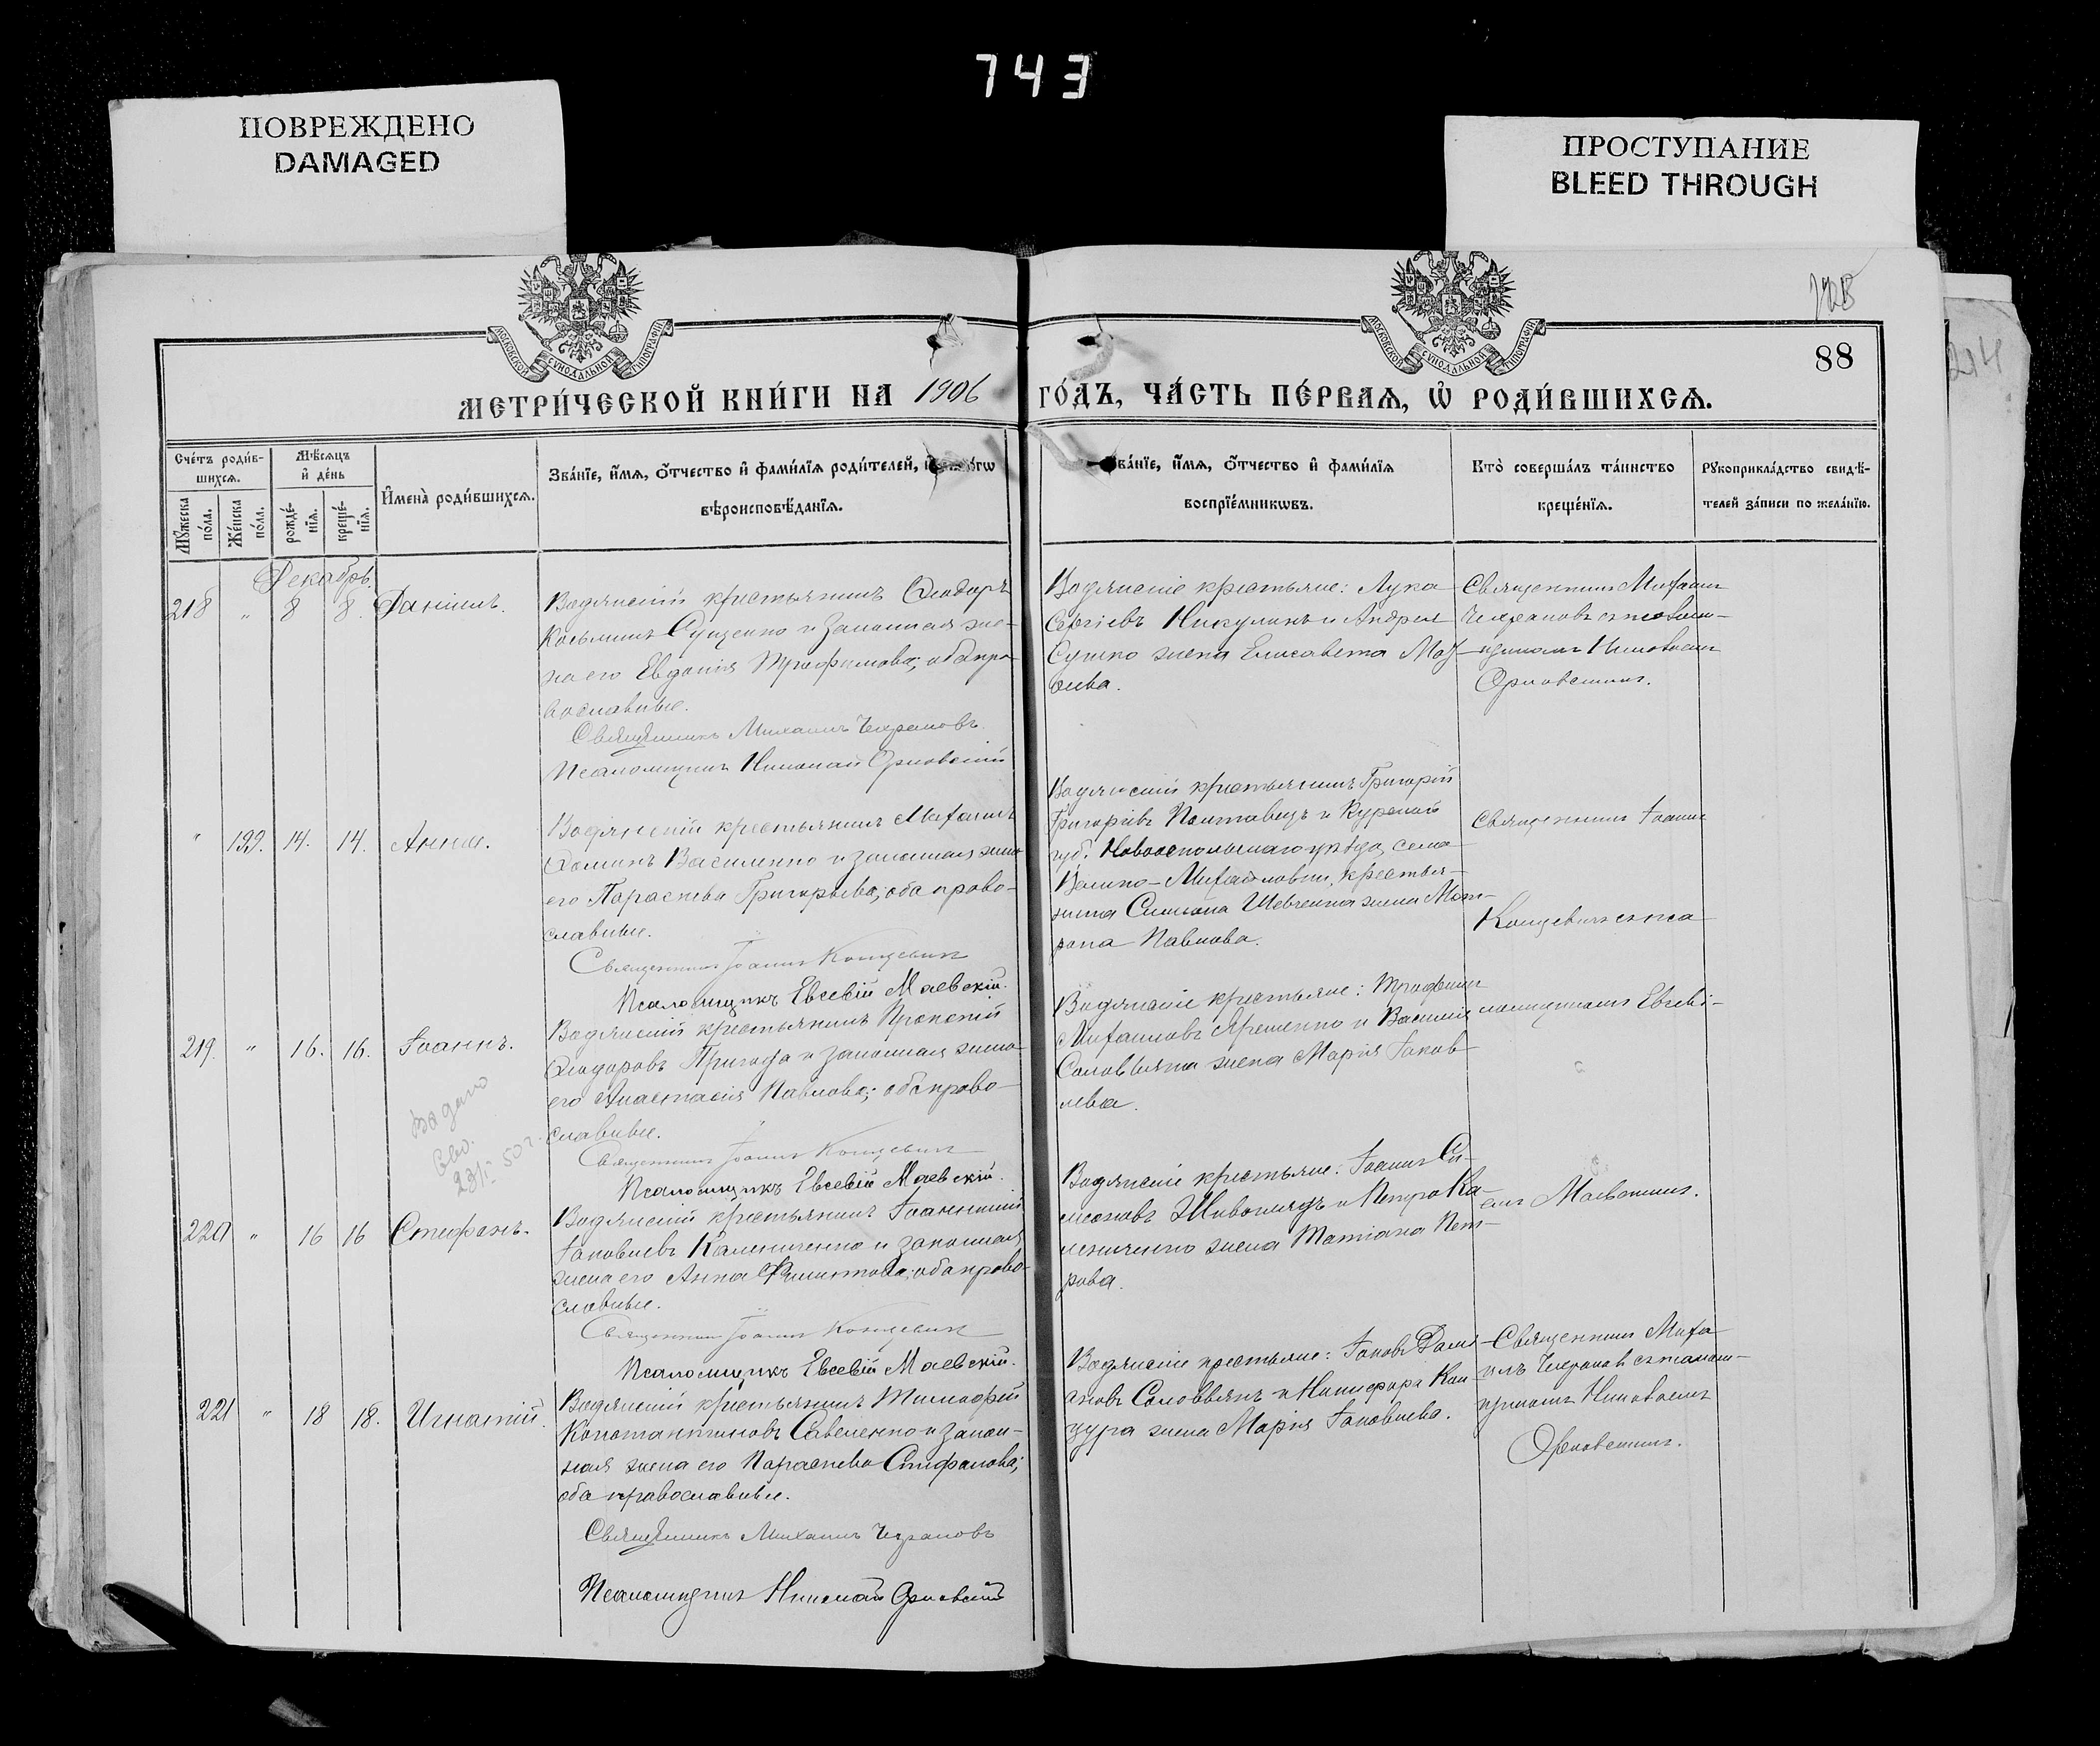 743
ПОВРЕЖДЕНО
DAMAGED
ПРОСТУПАНИЕ
BLEED THROUGH
МОСКОВСКОЙ СУНОДАЛЬНОЙ ТИПОГРАФІИ
МОСКОВСКОЙ СУНОДАЛЬНОЙ ТИПОГРАФІИ
88
МЕТРИ́ЧЕСКОЙ КНИ́ГИ НА 1906
ГО́ДЪ, ЧА́СТЬ ПЕ́РВАѦ, Ѡ҆ РОДИ́ВШИХСѦ.
Сче́тъ роди́в-
шихсѧ.
Мꙋжеска по́ла.
Же́нска по́ла.
Мѣ́сѧцъ
и҆ де́нь
рожде́-
нїѧ.
креще́-
нїѧ.
И҆мена̀ роди́вшихсѧ.
Зва́нїе, и҆́мѧ, ѻ҆́тчество и҆ фами́лїѧ роди́телей, и҆
вѣроисповѣ́данїѧ.
ва́нїе, и҆́мѧ, ѻ҆́тчество и҆ фами́лїѧ
воспрїе́мникѡвъ.
Кто̀ соверша́лъ та́инство
креще́нїѧ.
Рꙋкоприкла́дство свидѣ́-
телей за́писи по жела́нїю.
Декабрь.
218 " 8 8. Даніилъ.
Водянскій крестьянинъ Ѳеодоръ
Косьминъ Сущенко и законная же-
на его Евдокія Трофимова; оба пра-
вославные.
Священникъ Михаилъ Чехрановъ.
Псаломщикъ Николай Орловскій
Водянскіе крестьяне: Лука
Сергіевъ Никулинъ и Андрея
Сушко жена Елисавета Мо
сева.
Священникъ Михаилъ
Чехрановъ съ псалом-
щикомъ Николаемъ
Орловскимъ.
" 199. 14. 14. Анна.
Водянскій крестьянинъ Михаилъ
Ѳоминъ Василенко и законная жена
его Параскева Григорьева; оба право-
славные.
Священникъ Іоаннъ Концевичъ
Псаломщикъ Евсевій Маевскій.
Водянскій крестьянинъ Григорій
Григоріевъ Полтавецъ и Курской
губ. Новооскольскаго уѣзда, села
Волико-Михайловки, крестья-
нина Симеона Шевченка жена Мат-
рона Павлова.
Священникъ Іоаннъ
Концевичъ съ пса
ломщикомъ Евсеві-
емъ Маевскимъ.
219. " 16. 16. Іоаннъ.
Водянскій крестьянинъ Прокопій
Ѳеодоровъ Пригода и законная жена
его Анастасія Павлова; оба право-
славные.
Священникъ Іоаннъ Концевичъ
Псаломщикъ Евсевій Маевскій.
Водянскіе крестьяне: Трофимъ
Михаиловъ Яременко и Василія
Соловьяна жена Марія Іаков
лева.
Видано
Сви.
23/I 50 г.
220 " 16 16 Стефанъ.
Водянскій крестьянинъ Іоанникій
Іаковлевъ Калениченко и законная
жена его Анна Филиппова; оба право-
славные.
Священникъ Іоаннъ Концевичъ
Псаломщикъ Евсевій Маевскій.
Водянскіе крестьяне: Іоаннъ Си-
меоновъ Животягъ и Петра Ка-
лениченко жена Татіана Пет-
рова.
221 " 18 18. Игнатій.
Водянскій крестьянинъ Тимофей
Константиновъ Савченко и закон-
ная жена его Параскева Стефанова;
оба православные.
Священникъ Михаилъ Чехрановъ
Псаломщикъ Николай Орловскій
Водянскіе крестьяне: Іаковъ Дамі-
ановъ Соловьянъ и Никифора Кан
цура жена Марія Іаковлева.
Священникъ Миха
илъ Чехрановъ съ псалом-
щикомъ Николаемъ
Орловскимъ.